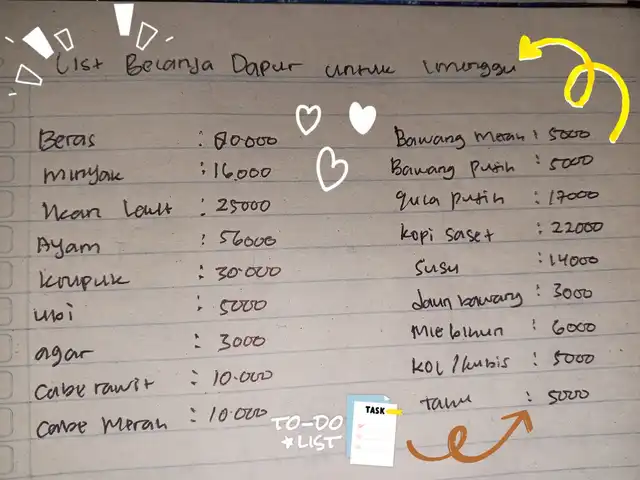 List Belanja Dapur untuk 1minggu
Beras : 80.000
Minyak : 16.000
Ikan Laut : 25000
Ayam : 56000
Krupuk : 30.000
Ubi : 5000
agar : 3000
Cabe rawit : 10.000
Cabe Merah : 10.000
Bawang Merah : 5000
Bawang Putih : 5000
gula putih : 17000
kopi saset : 22000
Susu : 14000
daun bawang : 3000
Mie bihun : 6000
kol/kubis : 5000
tahu : 5000
TO-DO
LIST
TASK